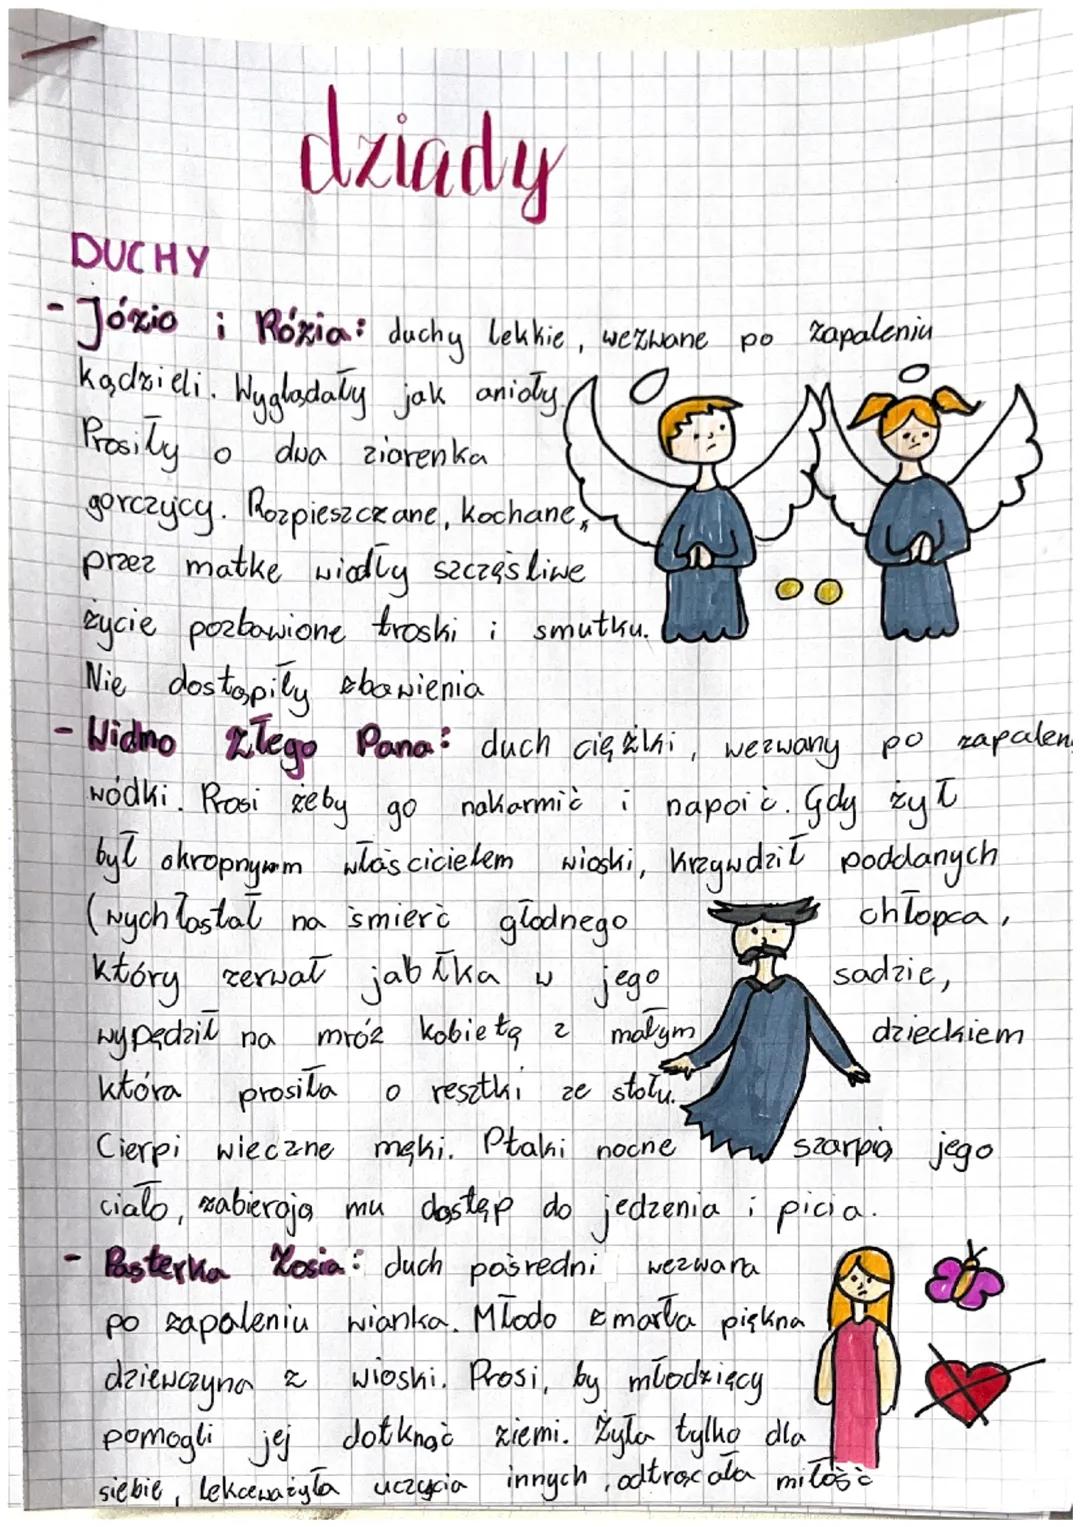 dziady
DUCHY
- Józio i Rózia: duchy lekkie, wezwane po zapaleniu
kądzieli. Wyglądały jak anioły.
Prosiły o dwa ziarenka
gorczycy. Rozpieszczane, kochane,
przez matkę wiodły szczęśliwe
życie pozbawione troski i smutku.
Nie dostąpiły zbawienia
- Widmo Złego Pana: duch ciężki, wezwany po zapalen
wódki. Prosi żeby go nakarmić i napoić. Gdy żył
był okropnym właścicielem wioski, krzywdził poddanych
(wychłostał na śmierć głodnego chłopca,
który zerwał jabłka w jego sadzie,
wypędził na mróz kobietę z małym dzieckiem
która prosiła o resztki ze stołu.
Cierpi wieczne męki. Ptaki nocne szarpią jego
ciało, zabierają mu dostęp do jedzenia i picia.
- Pasterka Zosia: duch pośredni wezwana
po zapaleniu wianka. Młodo zmarła piękna
dziewczyna z wioski. Prosi, by młodzięcy
pomogli jej dotknąć ziemi. Żyła tylko dla
siebie, lekceważyła uczucia innych, odtrącała miłość